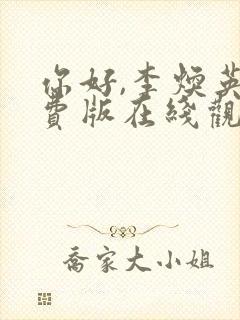 你好,李煥英
費版在綫觀
喬家大小姐